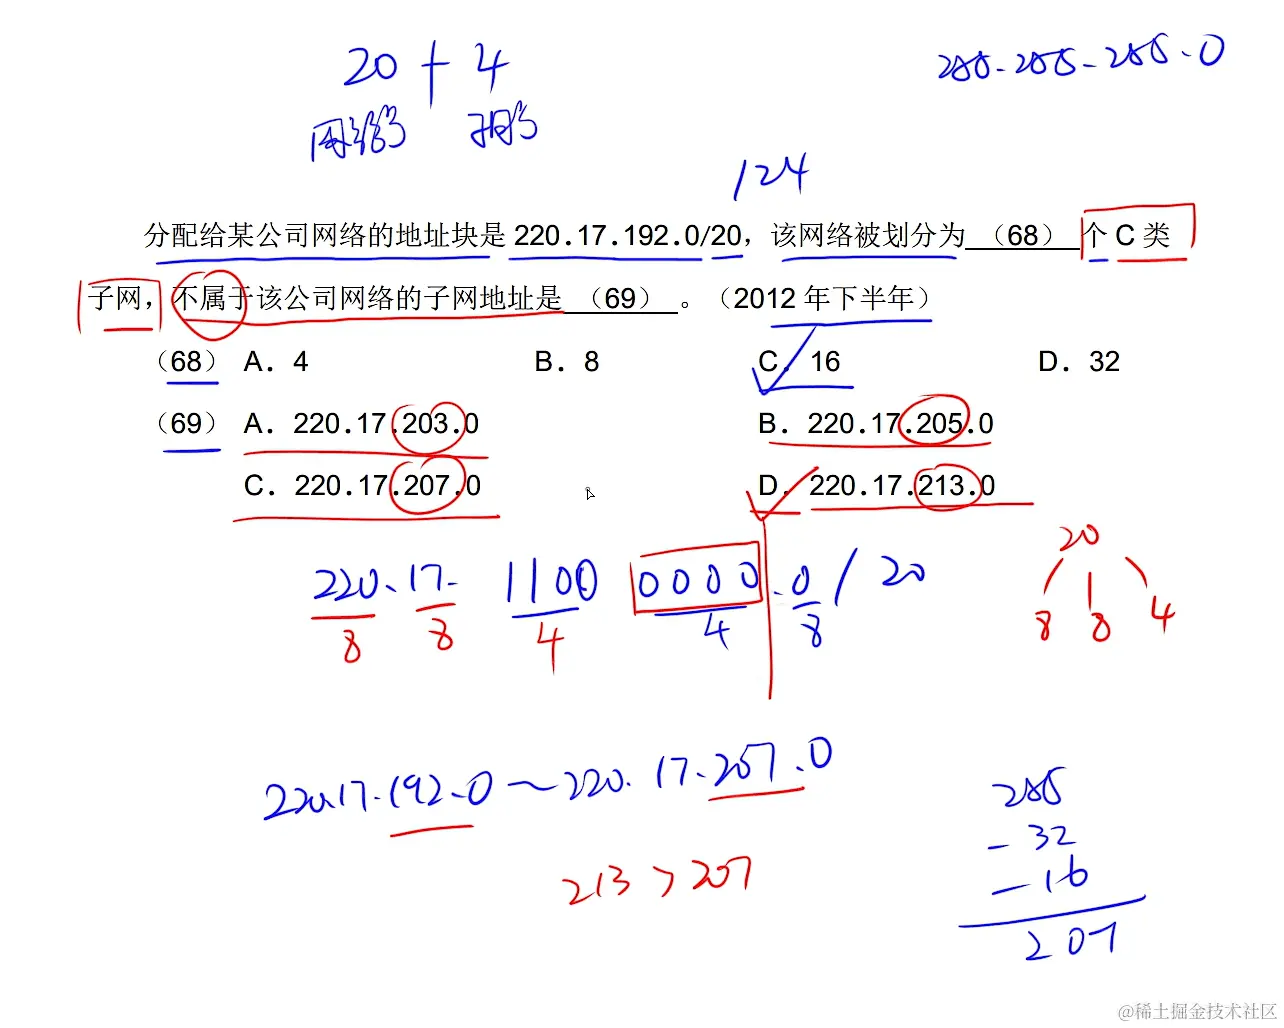 20 + 4
255.255.255.0
网络号 子网号
/24
分配给某公司网络的地址块是 220.17.192.0/20，该网络被划分为 （68） 个 C 类
子网，不属于该公司网络的子网地址是 （69） 。（2012 年下半年）
（68） A．4 B．8 C．16 D．32
（69） A．220.17.203.0 B．220.17.205.0
C．220.17.207.0 D．220.17.213.0
20
220.17.1100 0000.0/20
8 8 4
8 8 4 4 8
220.17.192.0～220.17.207.0
255
-32
-16
207
213 > 207
@稀土掘金技术社区